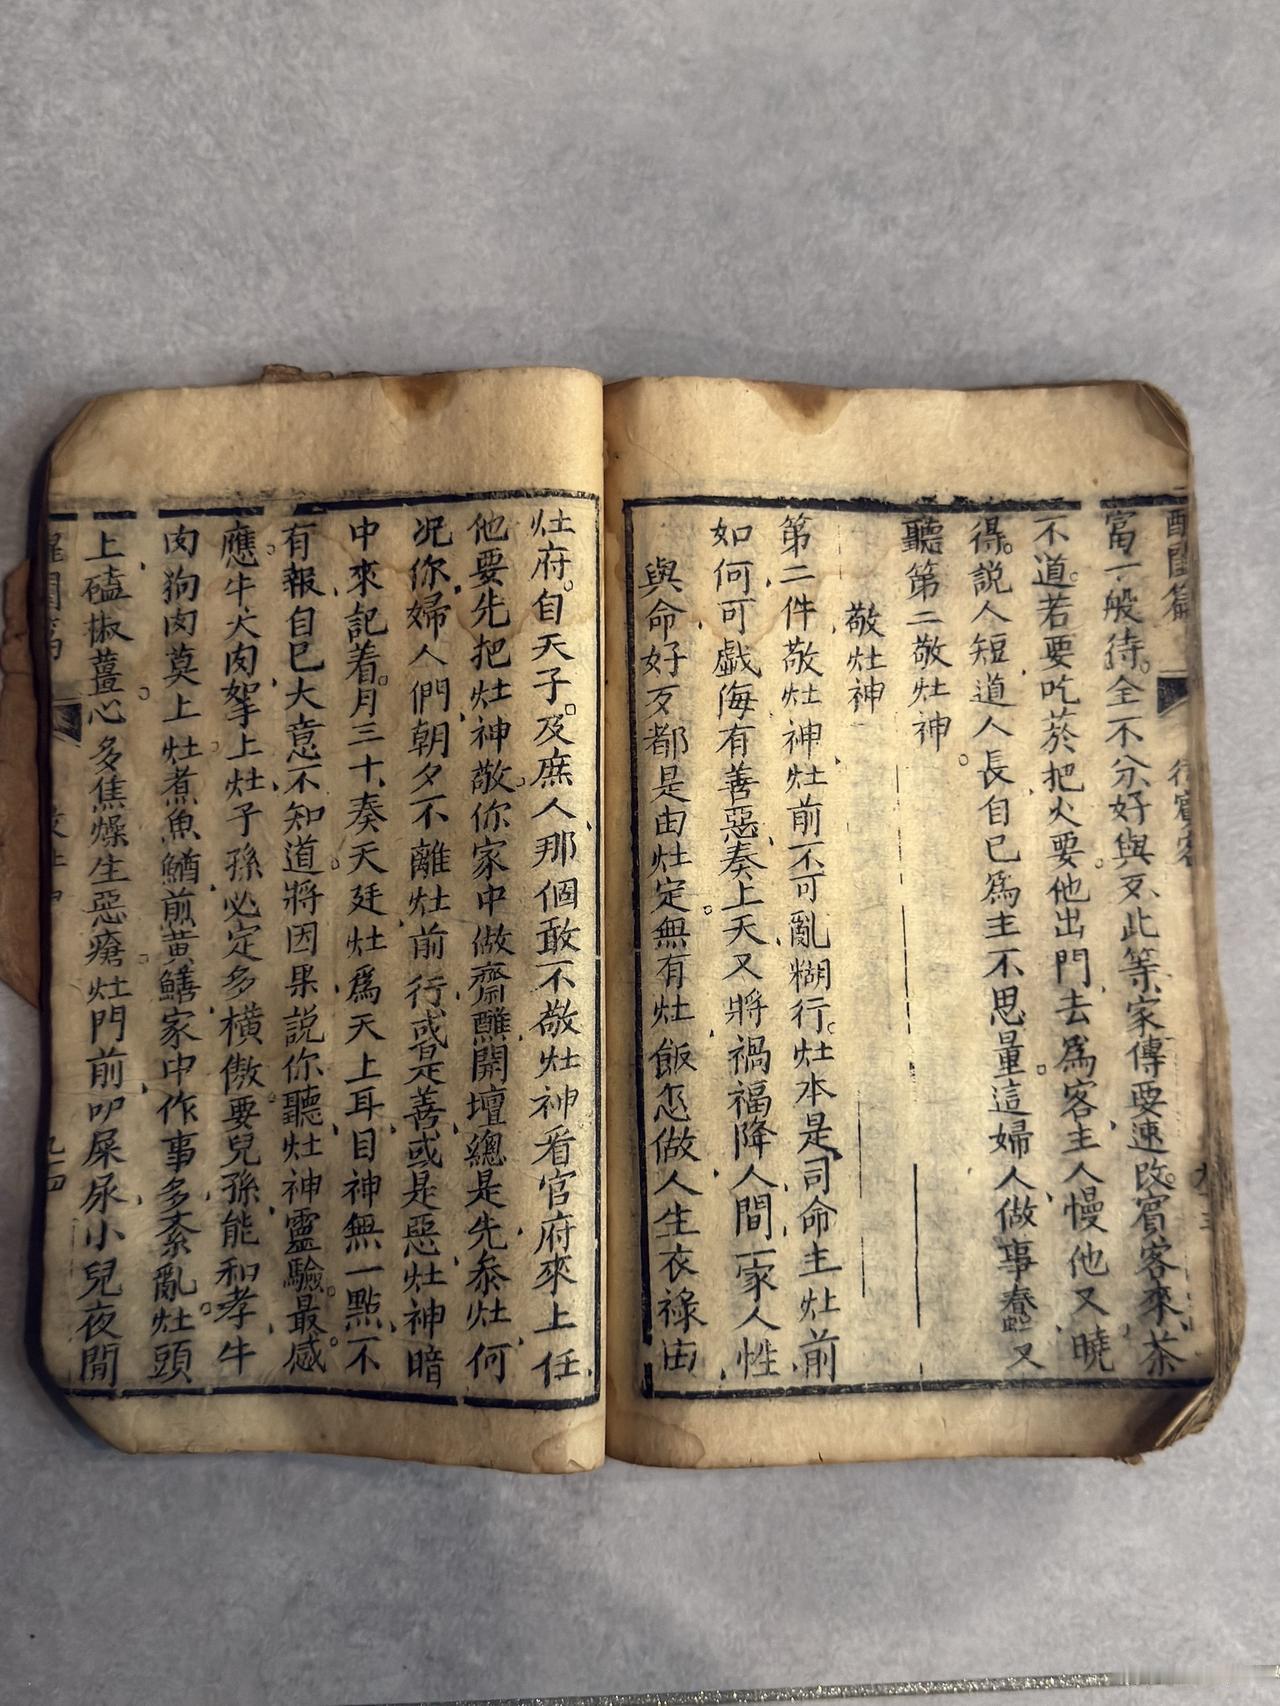 醒閨篇 待賓客
富一般待。全不分好與歹、此等家傳要速改。賓客來、茶
不道。若要吃菸把火要。他出門去爲客主人慢他又曉
得。說人短道人長、自己爲主不思量。這婦人做事蠢、又
聽第二敬灶神。
敬灶神
第二件敬灶神、灶前不可亂糊行。灶本是司命主、灶前
如何可戲侮、有善惡奏上天、又將禍福降人間、一家人性
與命、好歹都是由灶定。無有灶、飯怎做、人生衣祿由
灶府。自天子。及庶人、那個敢不敬灶神、看官府來上任、
他要先把灶神敬。你家中做齋醮、開壇總是先叅灶、何
况你婦人們、朝夕不離灶前行、或是善或是惡、灶神暗
中來記着。月三十、奏天廷、灶爲天上耳目神、無一點、不
有報、自己大意不知道。將因果說你聽、灶神靈驗最感
應。牛犬肉、拏上灶、子孫必定多橫傲、要兒孫、能和孝、牛
肉狗肉莫上灶。煮魚鰌、煎黃鱔、家中作事多紊亂。灶頭
上、磕椒薑。心多焦燥生惡瘡。灶門前、叩屎尿、小兒夜間
醒閨篇 敬灶神 九四